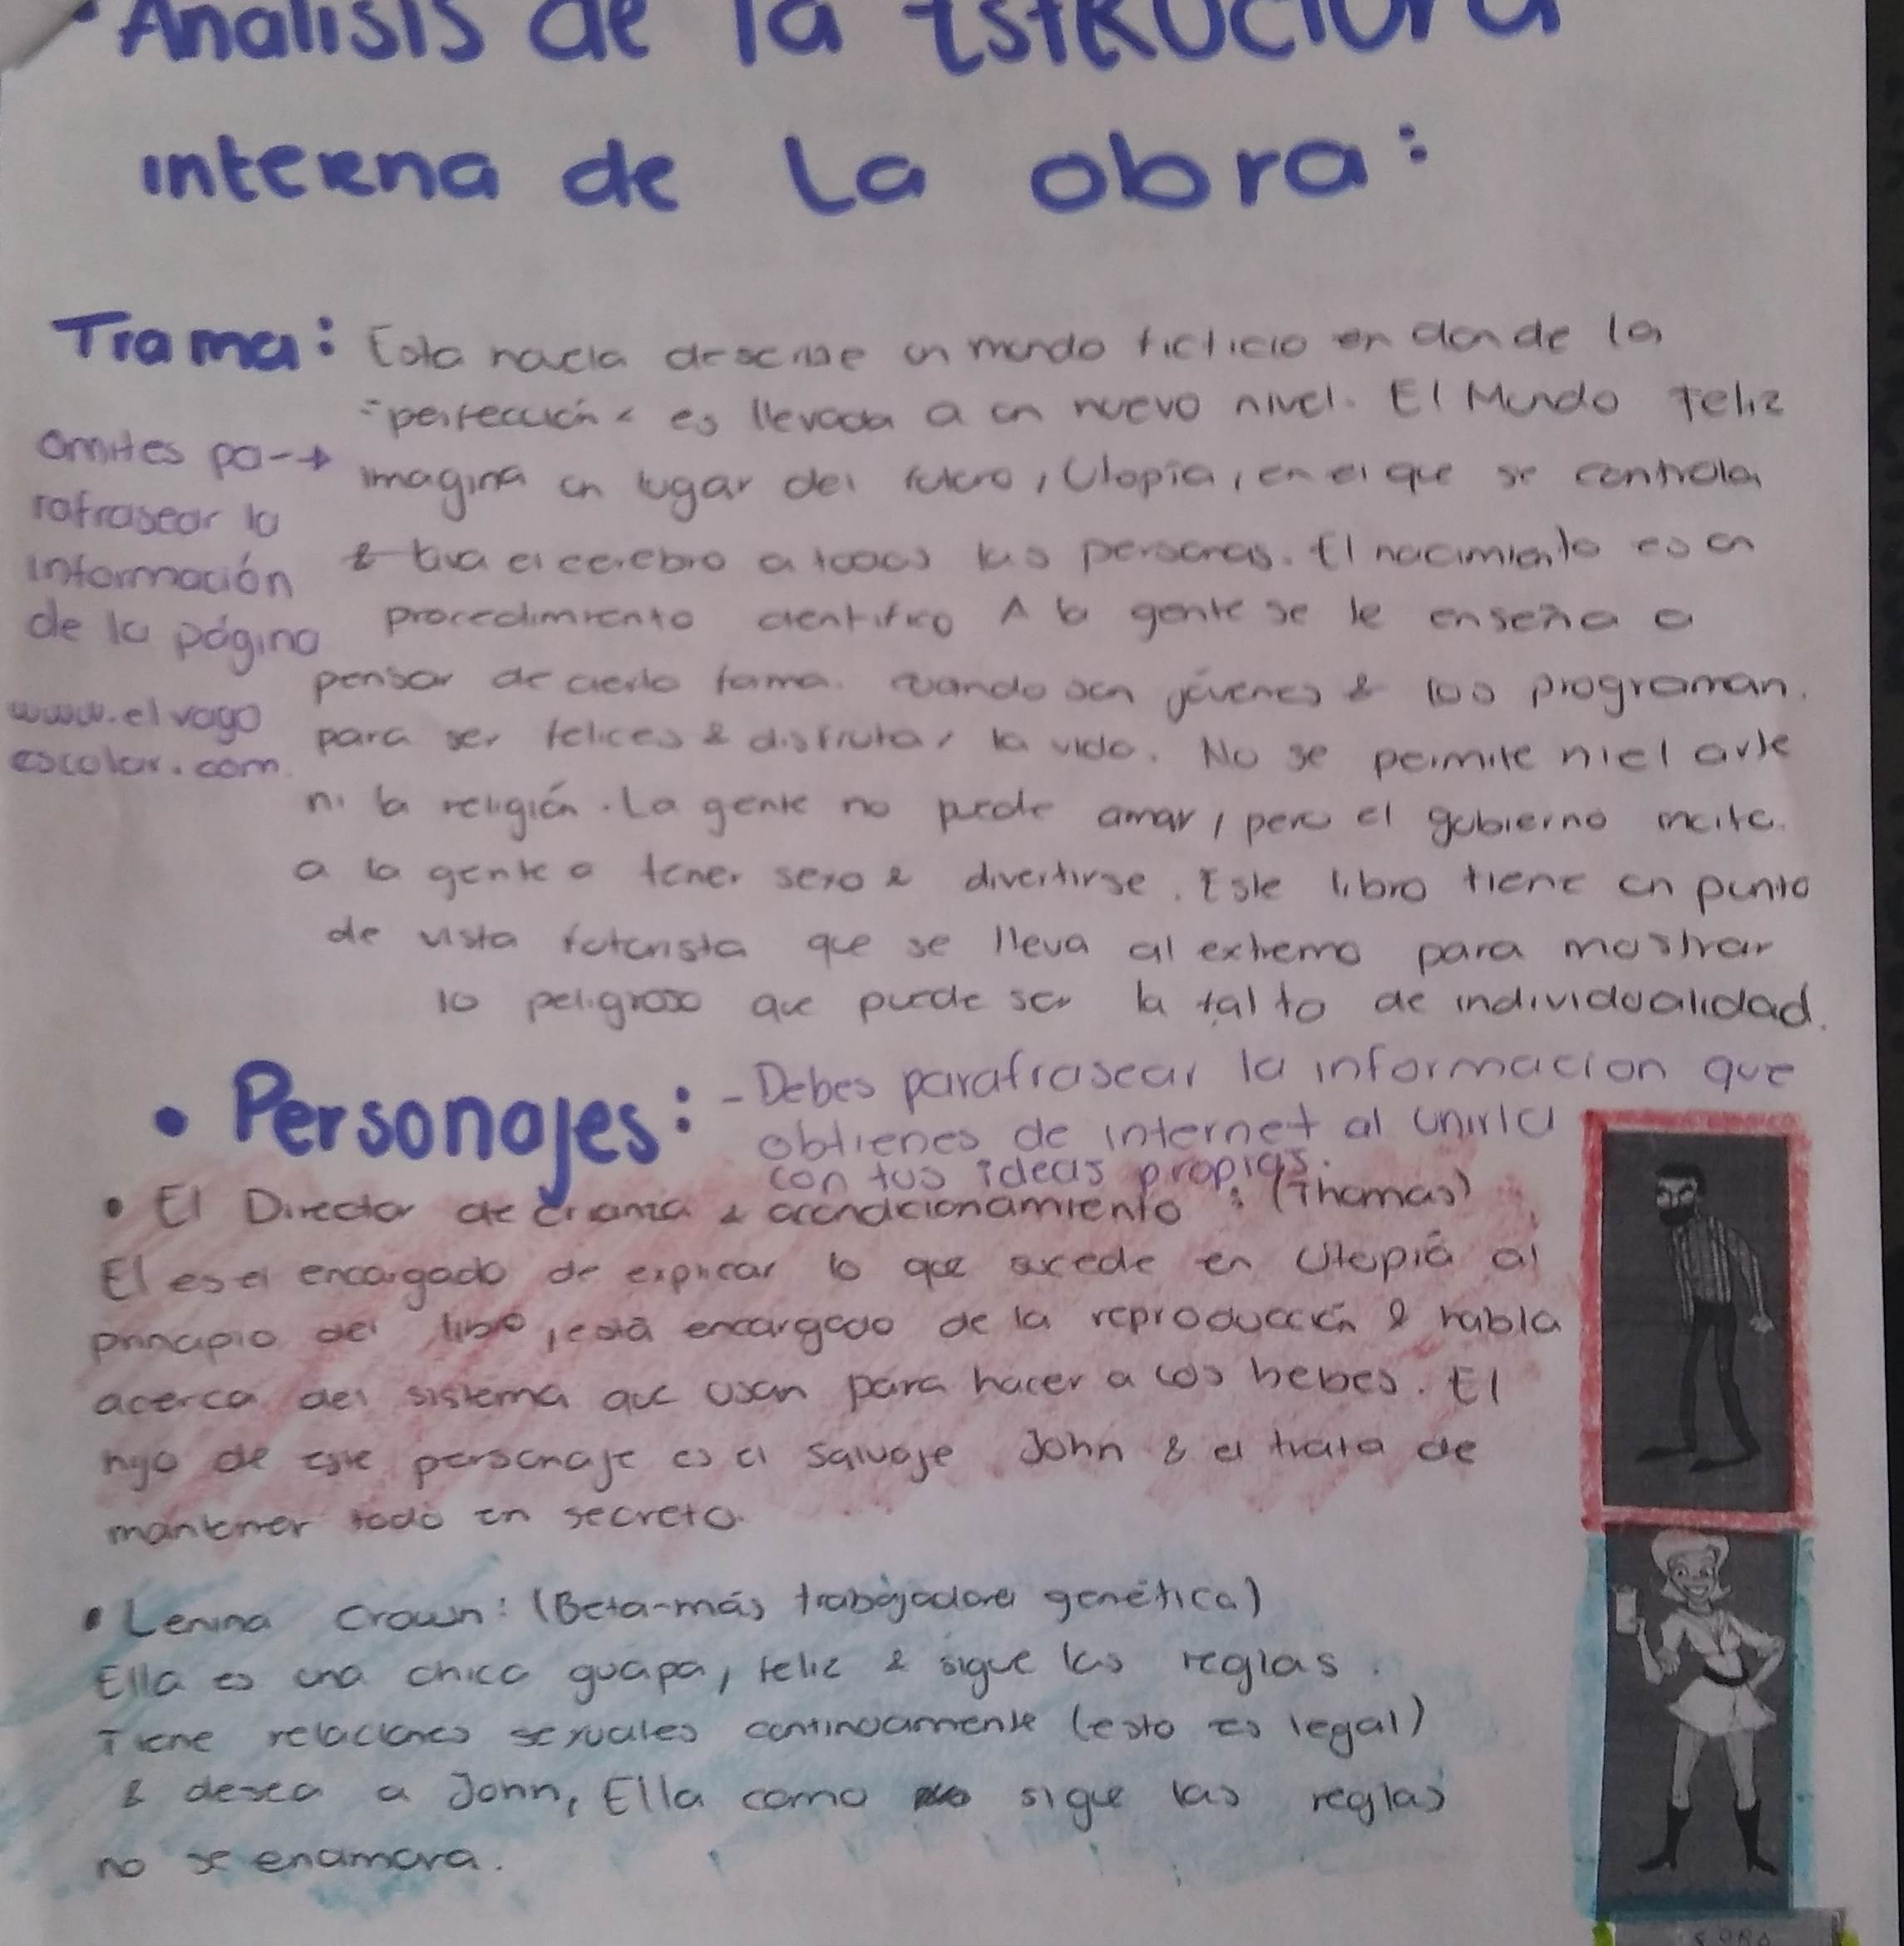 Análisis de la Estructura
interna de la obra:
Trama: Esta novela describe un mundo ficticio en donde la
"perfección" es llevada a un nuevo nivel. El Mundo Feliz
omites pa-→ imagina un lugar del futuro, Utopía, en el que se controla
rafrasear la
información & lava el cerebro a todas las personas. El nacimiento es un
de la página procedimiento científico A la gente se le enseña a
pensar de cierta forma. cuando son jóvenes & los programan.
www.elvago para ser felices & disfrutar la vida. No se permite ni el arte
escolar.com. ni la religión. La gente no puede amar, pero el gobierno incita.
a la gente a tener sexo & divertirse. Este libro tiene un punto
de vista futurista que se lleva al extremo para mostrar
lo peligroso que puede ser la falta de individualidad.
• Personajes: - Debes parafrasear la informacion que
obtienes de internet al unirla
con tus ideas propias.
• El Director de crianza & acondicionamiento: (Thomas)
El es el encargado de explicar lo que sucede en Utopiá al
principio del libro, está encargado de la reproducción & habla
acerca del sistema que usan para hacer a los bebes. El
hijo de este personaje es el salvaje John & el trata de
mantener todo en secreto.
• Lenina Crown: (Beta-más trabajadora genética)
Ella es una chica guapa, feliz & sigue las reglas.
Tiene relaciones sexuales continuamente (esto es legal)
& desea a John, Ella como sigue las reglas
no se enamora.